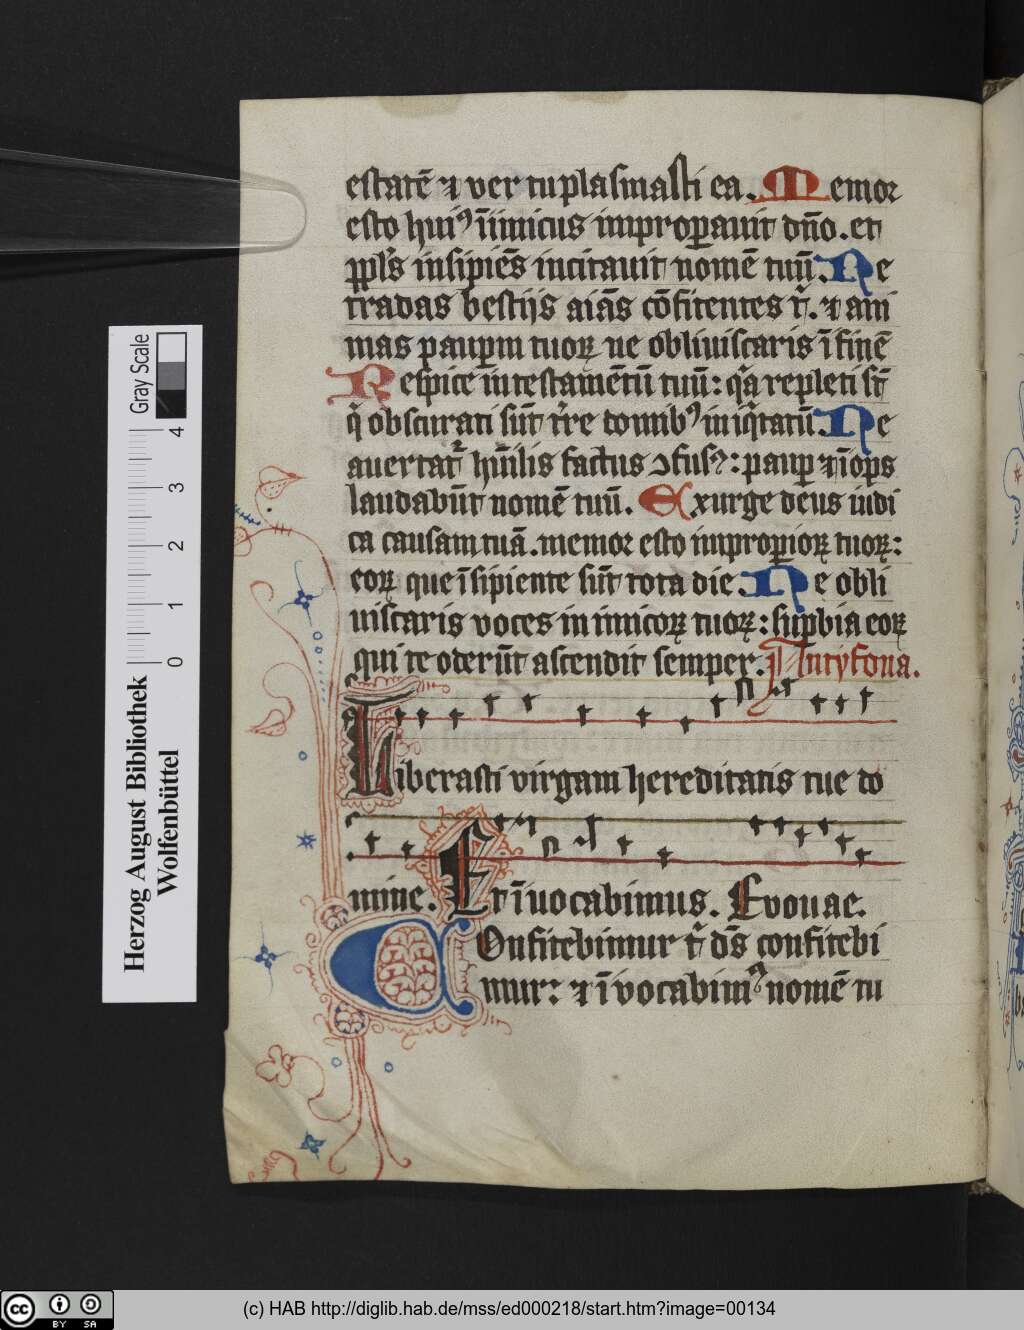 estatē ⁊ ver tu plasmasti ea. Memor
esto huiꝰ īimicus improꝑauit dn̄o. et
ppl's insipiēs incitauit nomē tuū. Ne
tradas bestijs aīas cōfitentes t̓. ⁊ ani
mas pauꝑm tuoꝝ ne obliuiscaris ī finē
Respice in testamētū tuū: qͣa repleti st̄
q̓ obscurati sūt t̓re domibꝰ iniqͥtatū. Ne
auertat᷑ hūilis factus ꝯfusꝰ: pauꝑ ⁊ īops
laudabūt nomē tuū. Exurge deus iudi
ca causam tuā. memor esto improꝑioꝝ tuoꝝ:
eoꝝ que īsipiente sūt tota die. Ne obli
uiscaris voces in imicoꝝ tuoꝝ: suꝑbia eoꝝ
qui te oderūt ascendit semper. Antyfona.
Liberasti virgam hereditatis tue do
mine. Et īuocabimus. Evouae.
Confitebimur t̓ ds̄ confitebi
mur: ⁊ ī vocabimꝰ nomē tu
Herzog August Bibliothek
Wolfenbüttel
Gray Scale
0 1 2 3 4
(c) HAB http://diglib.hab.de/mss/ed000218/start.htm?image=00134
cc BY SA